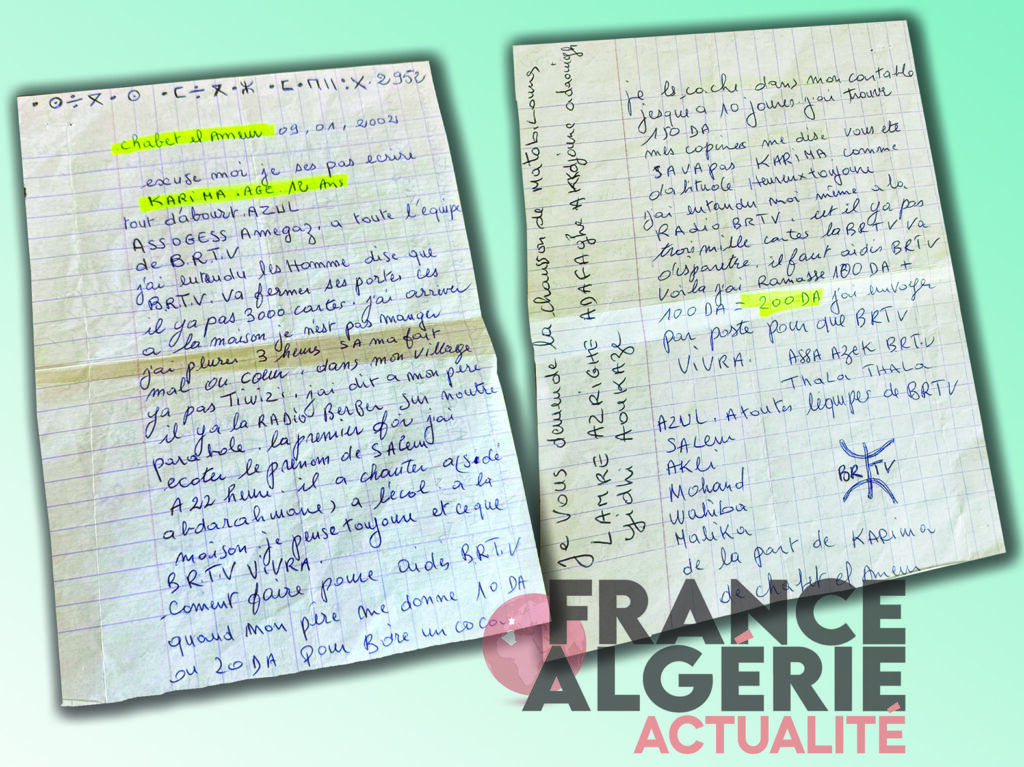 • ⵙ÷ⴳ • ⵙ • ⵎ÷ⴳ • ⵣ • ⵎ • ⵏ || : ⵅ • 2952
chabet el Ameur 09, 01, 2002
excuse moi je ses pas ecrire
KARIMA . AGE . 12 Ans
tout d'abourt . AZUL
ASSOGESS Amegaz, a toute l'equipe
de B.R.T.V
j'ai entendu les Homme dise que
BRTV. va fermer ses portes ces
il ya pas 3000 cartes. j'ai arriver
a la maison je n'est pas manger
j'ai plurer 3 heurs SA ma fait
mal ou cœur, dans mon village
ya pas Tiwizi, j'ai dit a mon père
il ya la RADio BerBer sur noutre
parabole. la premier foi j'ai
ecoter le prenom de SAlem
A 22 heure il a chanter a (sidé
abdarahmane) a l'ecol a la
maison je pense toujoure et ce que
BRTV VIVRA.
Coment faire poure aides BRTV
quand mon père me donne 10 DA
ou 20 DA pour Bore un coco
je le cache dans mon cartable
jesque a 10 joures j'ai trouver
150 DA
mes copines me dise vous ete
SAVA pas KARIMA comme
d'abitude Heureux toujoure
j'ai entendu moi même a la
RAdio BRTV. cet il ya pas
trois mille cartes la BRTV va
disparetre, il faut aides BRTV
voila j'ai Ramasse 100 DA +
100 DA = 200 DA j'ai envoyer
par poste pour que BRTV
VIVRA. ASSA AZEK BRTV
THALA THALA
AZUL. A toutes l'equipes de BRTV
SAlem
AKli
Mohand
Wahiba
Malika
BRTV
de la part de KARima
de chabet el Ameur
Je vous demende la chanson de Matoub Lounes
LAMRE AZRIGHE ADAFAGHE AKKdjoune adaouigh
yidhi Aoukaze
FRANCE
ALGÉRIE
ACTUALITÉ